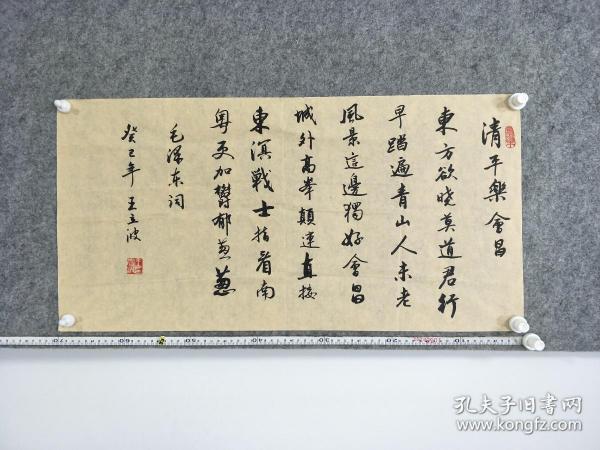 清平樂會昌
東方欲晓莫道君行
早踏遍青山人未老
風景這邊獨好會昌
城外高峯顛連直接
東溟戰士指看南
粵更加欝郁葱葱
毛泽东词
癸巳年 王立波
孔夫子旧书网
www.kongfz.com